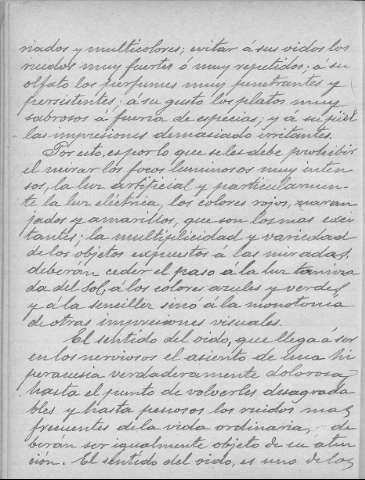 riados y multicolores; evitar á sus oidos los
ruidos muy fuertes ó muy repetidos; á su
olfato los perfumes muy penetrantes y
persistentes; á su gusto los platos muy
sabrosos á fuerza de especias; y á su piel
las impresiones demasiado irritantes.
Por esto, es por lo que se les debe prohibir
el mirar los focos luminosos muy inten-
sos, la luz artificial y particularmen-
te la luz eléctrica, los colores rojos, naran
jados y amarillos, que son los mas exci
tantes; la multiplicidad y variedad
de los objetos expuestos á las miradas,
deberán ceder el paso á la luz tamiza
da del sol, á los colores azules y verdes
y á la sencillez sinó á la monotonia
de otras impresiones visuales.
El sentido del oido, que llega á ser
en los nerviosos el asiento de una hi
peracusia verdaderamente dolorosa,
hasta el punto de volverles desagrada
bles y hasta penosos los ruidos mas
frecuentes de la vida ordinaria, de
berán ser igualmente objeto de su aten
ción. El sentido del oido, es uno de los